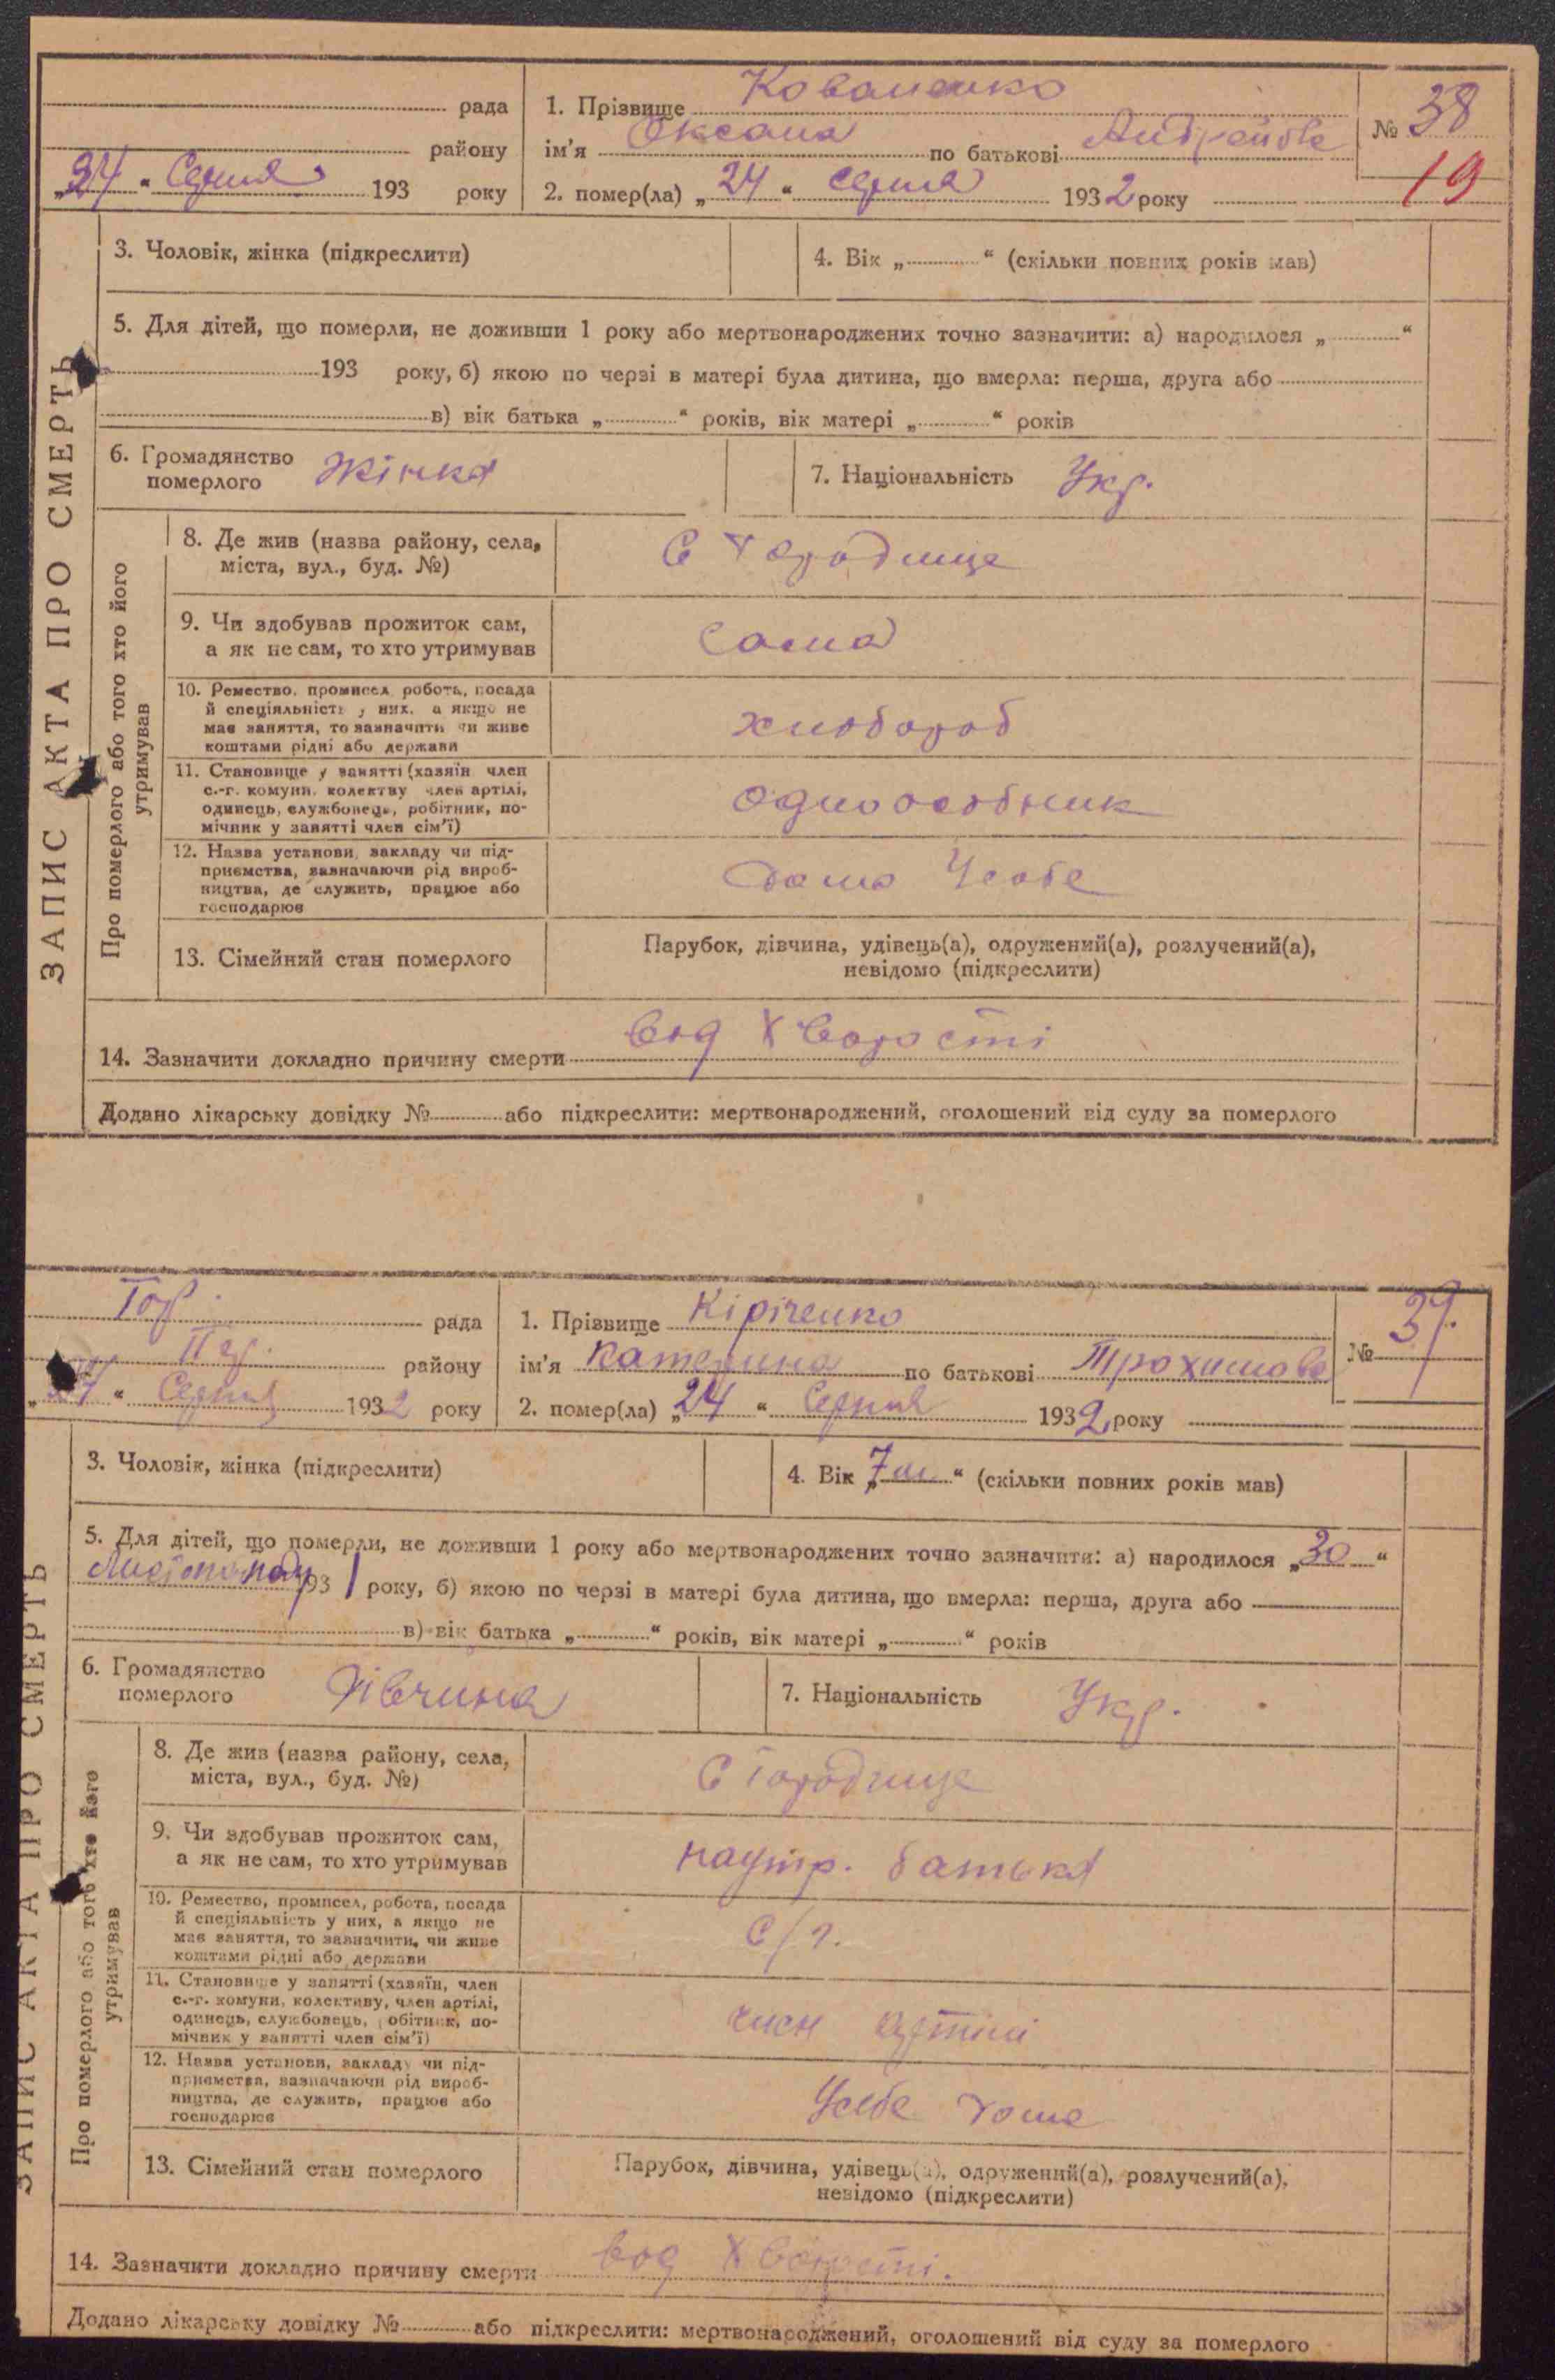 рада
району
„24“ Серпня 193 року
1. Прізвище Коваленко
ім'я Оксана по батькові Андреївна
2. помер(ла) „24“ Серпня 1932 року
№ 38
19
ЗАПИС АКТА ПРО СМЕРТЬ
3. Чоловік, жінка (підкреслити)
4. Вік „ “ (скільки повних років мав)
5. Для дітей, що померли, не доживши 1 року або мертвонароджених точно зазначити: а) народилося „ “
193 року, б) якою по черзі в матері була дитина, що вмерла: перша, друга або
в) вік батька „ “ років, вік матері „ “ років
6. Громадянство
померлого Жінка
7. Національність Укр.
Про померлого або того хто його
утримував
8. Де жив (назва району, села,
міста, вул., буд. №)
С Городище
9. Чи здобував прожиток сам,
а як не сам, то хто утримував
Сама
10. Ремество, промисел, робота, посада
й спеціяльність у них, а якщо не
має заняття, то зазначити чи живе
коштами рідні або держави
хлібороб
11. Становище у занятті (хазяїн член
с.-г. комуни, колектву член артілі,
одинець, службовець, робітник, по-
мічник у занятті член сім'ї)
одноособник
12. Назва установи, закладу чи під-
приємства, зазначаючи рід вироб-
ництва, де служить, працює або
господарює
дома Усебе
13. Сімейний стан померлого
Парубок, дівчина, удівець(а), одружений(а), розлучений(а),
невідомо (підкреслити)
14. Зазначити докладно причину смерти вод Хворості
Додано лікарську довідку № або підкреслити: мертвонароджений, оголошений від суду за померлого
Гор. рада
району
„24“ Серпня 1932 року
1. Прізвище Кіріченко
ім'я Катерина по батькові Трохимова
2. помер(ла) „24“ Серпня 1932 року
№ 39.
ЗАПИС АКТА ПРО СМЕРТЬ
3. Чоловік, жінка (підкреслити)
4. Вік „7 м.“ (скільки повних років мав)
5. Для дітей, що померли, не доживши 1 року або мертвонароджених точно зазначити: а) народилося „30“
Листопаду 1931 року, б) якою по черзі в матері була дитина, що вмерла: перша, друга або
в) вік батька „ “ років, вік матері „ “ років
6. Громадянство
померлого Дівчина
7. Національність Укр.
Про померлого або того хто його
утримував
8. Де жив (назва району, села,
міста, вул., буд. №)
С Городище
9. Чи здобував прожиток сам,
а як не сам, то хто утримував
наутр. батька
10. Ремество, промисел, робота, посада
й спеціяльність у них, а якщо не
має заняття, то зазначити, чи живе
коштами рідні або держави
С/г.
11. Становище у занятті (хазяїн, член
с.-г. комуни, колективу, член артілі,
одинець, службовець, робітник, по-
мічник у занятті член сім'ї)
член артілі
12. Назва установи, закладу чи під-
приємства, зазначаючи рід вироб-
ництва, де служить, працює або
господарює
Усебе
13. Сімейний стан померлого
Парубок, дівчина, удівець(а), одружений(а), розлучений(а),
невідомо (підкреслити)
14. Зазначити докладно причину смерти вод Хворості.
Додано лікарську довідку № або підкреслити: мертвонароджений, оголошений від суду за померлого